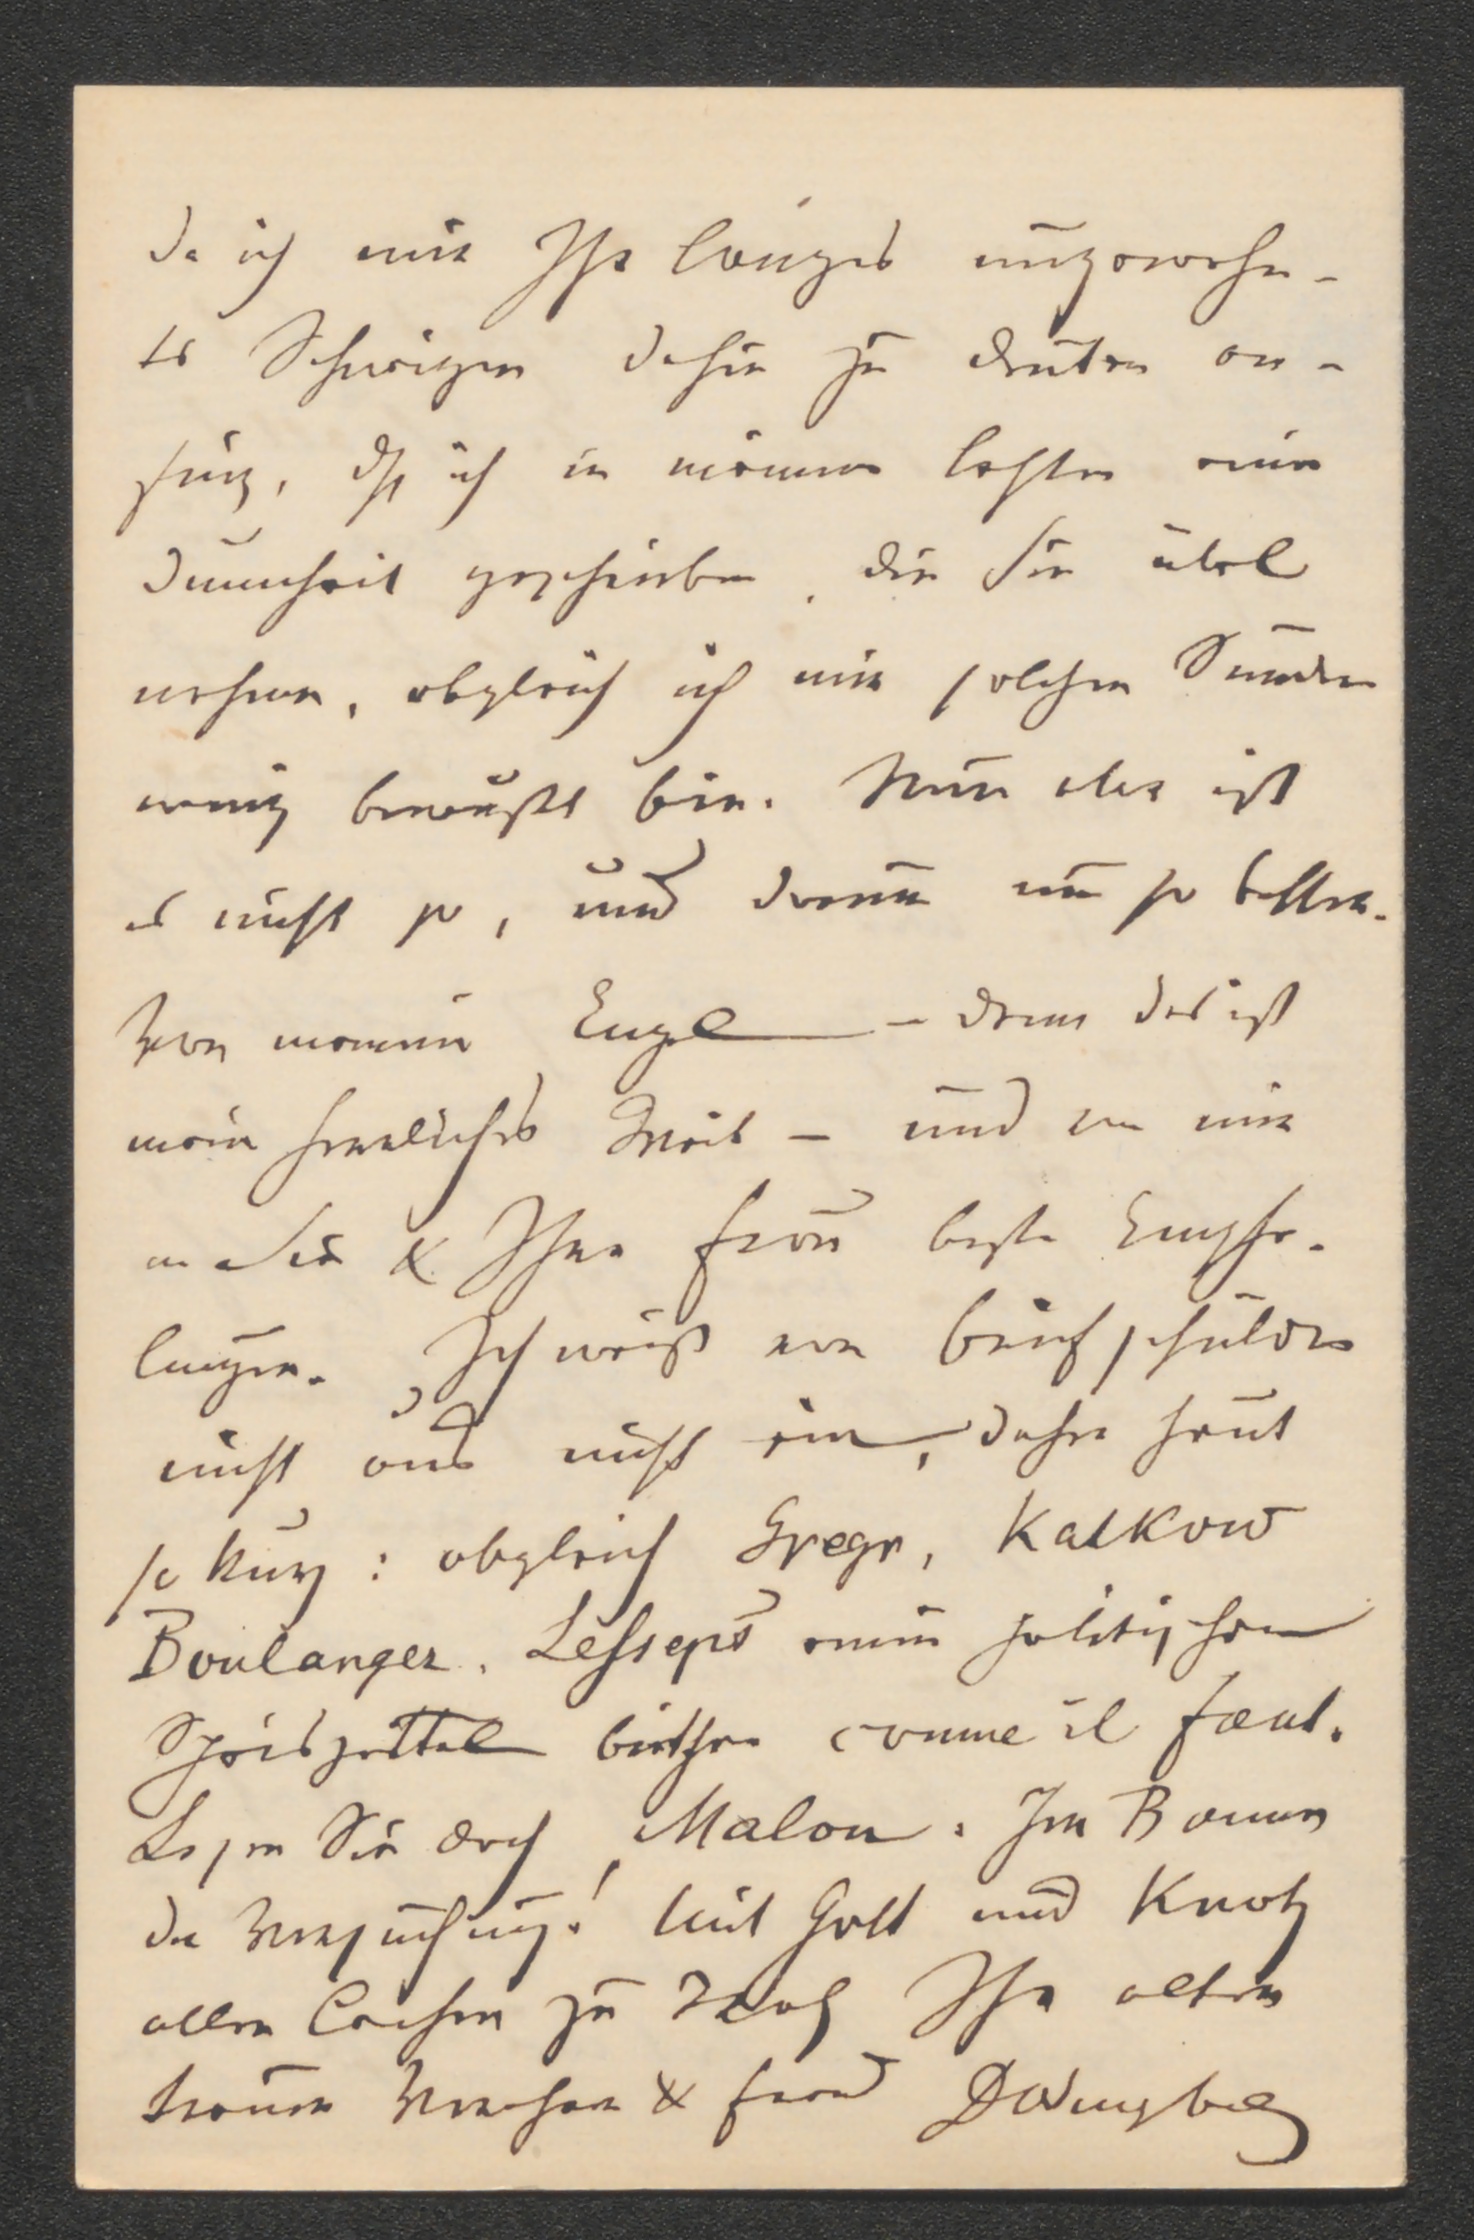 da ich mir Ihr langes ungewohn-
tes Schweigen dahin zu deuten an-
fing, dß ich in meinem letzten eine
Dummheit geschrieben, die Sie übel
nehmen, obgleich ich mir solcher Sünden
wenig bewußt bin. Nun aber ist
es nicht so, und darum um so besser.
Von meinem Engel – denn das ist
mein herrliches Weib – und von mir
an Sie & Ihre Frau beste Empfe-
lungen. Ich weiß vor Briefschulden
nicht aus nicht ein, daher heut
so kurz: obgleich Gregr, Katkow
Boulanger, Lesseps einen politischen
Speiszettel bieten comme il faut.
Lesen Sie doch Malon. Im Bann
der Versuchung! Mit Gott und
allen zu Ihr alter
treuer Verehrer & Freund